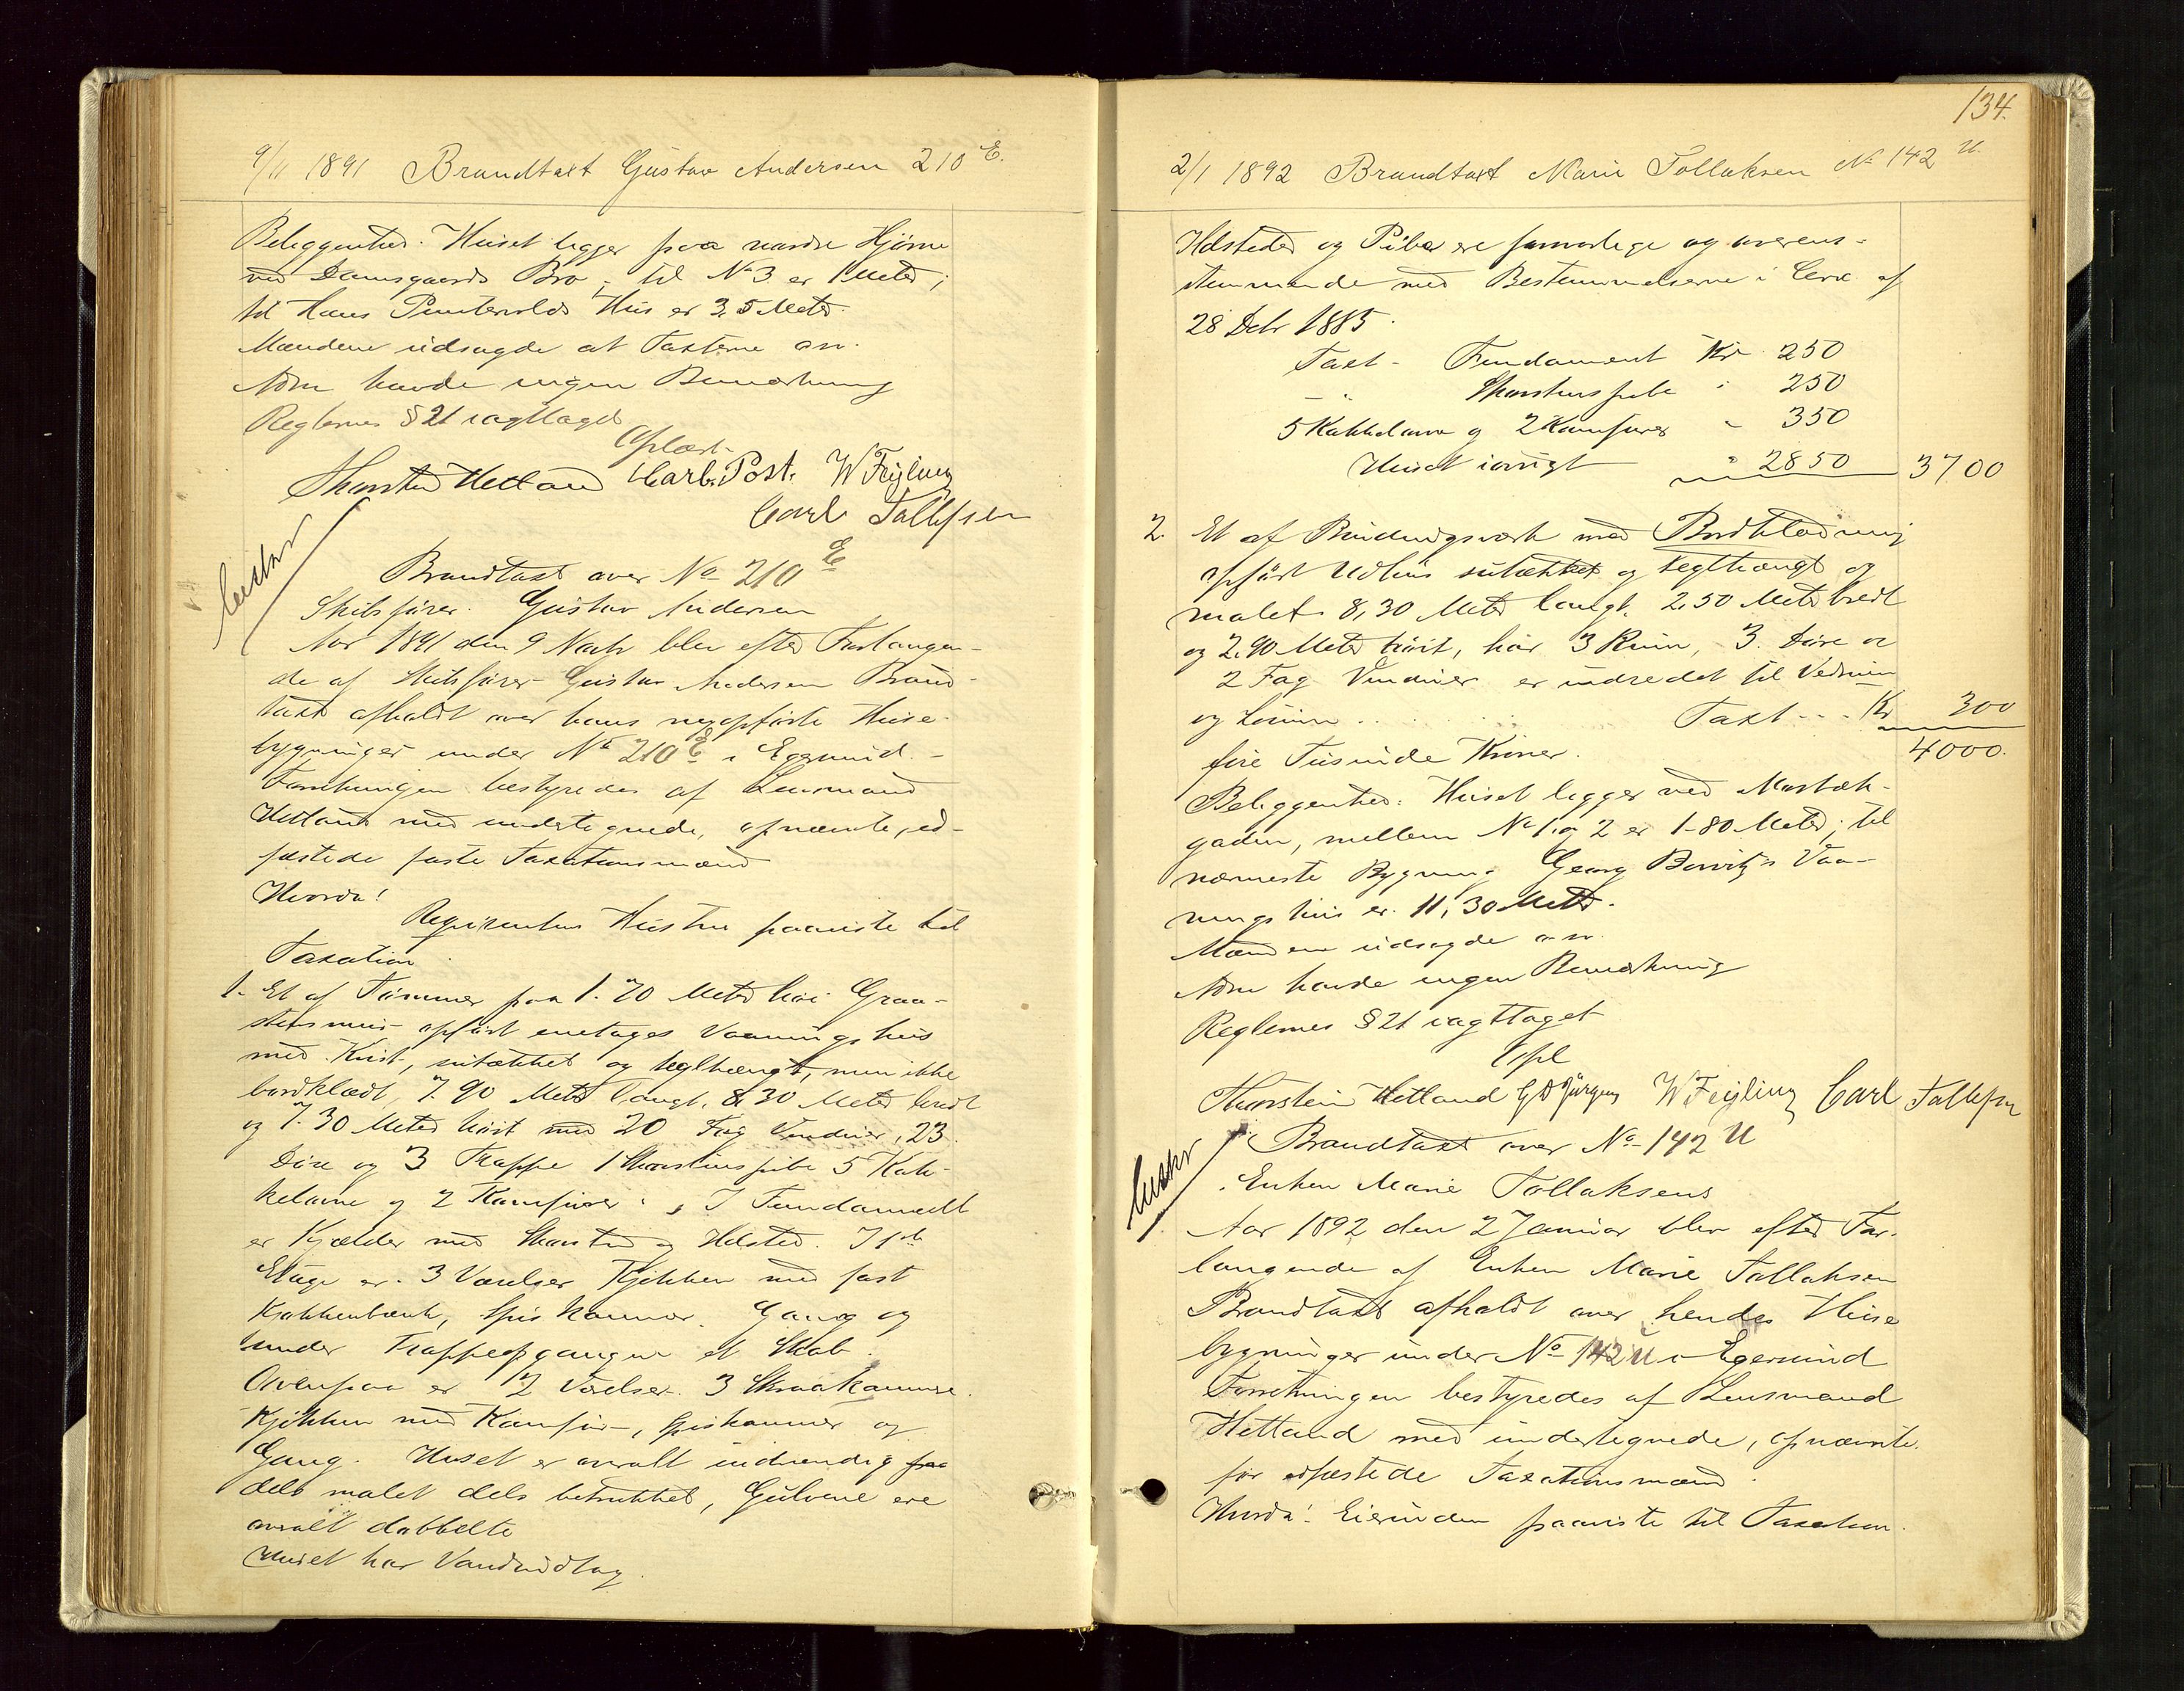 9/11 1891 Brandtaxt Gustav Andersen 210 E.
Beliggenhed. Huset ligger paa nordre Hjørne
ved Damsgaards Bro; til No 3 er 1 Meter;
til Hans Puntervolds Hus er 3,5 Meter.
Mændene udsagde at Taxterne o.s.v.
Adm havde ingen Bemærkning
Reglernes § 21 iagttaget
Oplæst
Thorstein Hetland Carl Post. W Feyling
Carl Tollefsen
Brandtaxt over No 210 E
Skibsfører Gustav Andersen
Aar 1891 den 9 Novbr blev efter Forlangen-
de af Skibsfører Gustav Andersen Brand-
taxt afholdt over hans nyopførte Huse-
bygninger under No 210 E i Egersund.-
Forretningen bestyredes af Lensmand
Hetland med undertegnede, opnævnte, ed-
fæstede faste Taxationsmænd
Hvorda!
Rekvirentens Hustru paaviste til
Taxation.
1. Et af Tømmer paa 1.70 Meter høi Graa-
stensmur opført enetages Vaaningshus
med Kvist, sutækket og teglhængt, men ikke
bordklædt, 7.90 Meter langt, 8,30 Meter bredt
og 7.30 Meter høit med 20 Fag Vinduer, 23
Døre og 3 Trappe 1 Skorstenspibe 5 Kak-
kelovne og 2 Komfurer. I Fundamentet
er Kjælder med Skorsten og Ildsted. I 1ste
Etage er 3 Værelser Kjøkken med fast
Kjøkkenbænk, Spiskammer, Gang og
under Trappeopgangen et Skab.
Ovenpaa er 2 Værelser. 3 Skraakammere.
Kjøkken med Komfur, Spiskammer og
Gang. Huset er overalt indvendig
dels malet dels betrukket, Gulvene ere
overalt dobbelte
Huset har Vandindtag.
134.
2/1 1892 Brandtaxt Marie Tollaksen No 142 U.
Ildsteder og Piber ere forsvarlige og overens-
stemmende med Bestemmelserne i Lov af
28 Debr 1885.
Taxt - Fundament Kr 250
- " Skorstenspibe " 250
5 Kakkelovne og 2 Komfurer " 350
Huset iøvrigt " 2850 3700
2. Et af Bindingsværk med Bordklædning
opført Udhus sutækket og teglhængt og
malet 8,30 Meter langt, 2,50 Meter bredt
og 2,90 Meter høit, har 3 Rum, 3 Døre og
2 Fag Vinduer er indredet til Vedrum
og Lörum . . Taxt - - - Kr 300
fire Tusinde Kroner. 4000.
Beliggenhed: Huset ligger ved
gaden, mellem No 1 og 2 er 1-80 Meter; til
nærmeste Bygning Georg Vaa-
ningshus er 11,30 Meter.
Mændene udsagde o.s.v.
Adm havde ingen Bemærkning
Reglernes § 21 iagttaget
Opl
Thorstein Hetland W Feyling Carl Tollefsen
Brandtaxt over No 142 U
Enken Marie Tollaksens
Aar 1892 den 2 Januar blev efter For-
langende af Enken Marie Tollaksen
Brandtaxt afholdt over hendes Huse
bygninger under No 142 U i Egersund
Forretningen bestyredes af Lensmand
Hetland med undertegnede, opnævnte
for edfæstede Taxationsmænd.
Hvorda! Eierinden paaviste til Taxation.